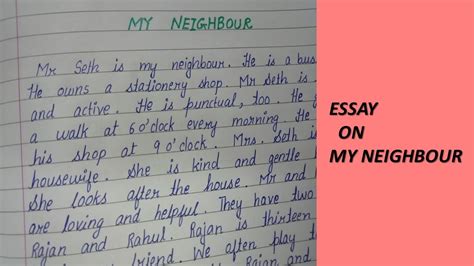 MY NEIGHBOUR
Mr Seth is my neighbour. He is a bus
He owns a stationery shop. Mr Seth is
and active. He is punctual, too. He g
a walk at 6 o'clock every morning. He
his shop at 9 o'clock. Mrs. Seth is
housewife. She is kind and gentle
She looks after the house. Mr and
are loving and helpful. They have two
Rajan and Rahul. Rajan is thirteen
friend. We often play t
Rajan and
ESSAY
ON
MY NEIGHBOUR